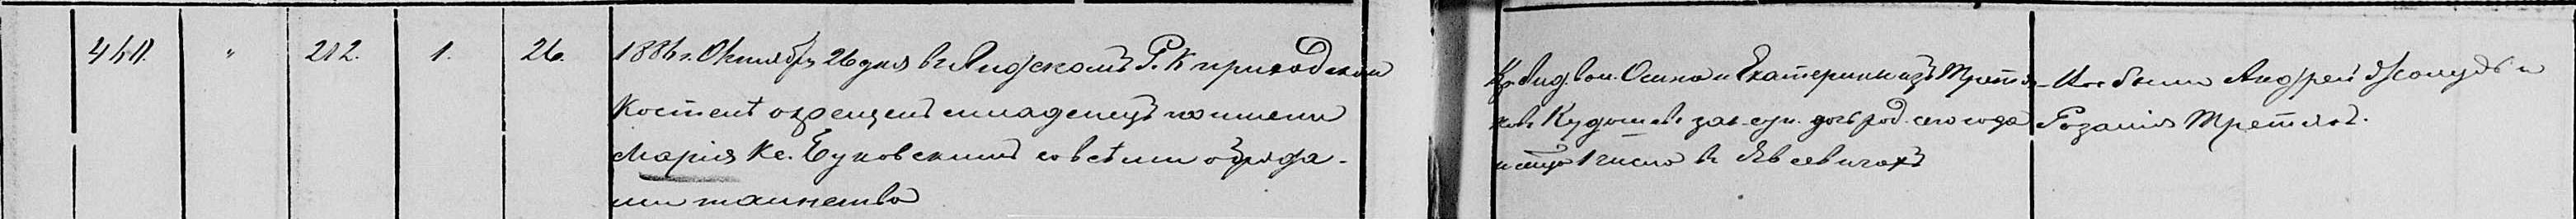 460. " 212. 1. 26.
1886 г. Октября 26 дня в Лидскомъ Р. К. приходском
Костелѣ окрещенъ младенецъ по имени
Марія Кс. Буковскимъ со всѣми обряда-
ми таинства
Кр. Лид. вол. Осипа и Екатерины изъ Третя-
ковъ Кудошъ зак. суп. дочь род. сего года
и мца 1 числа в
Вос. были Андрей и
Розалія Третякъ.